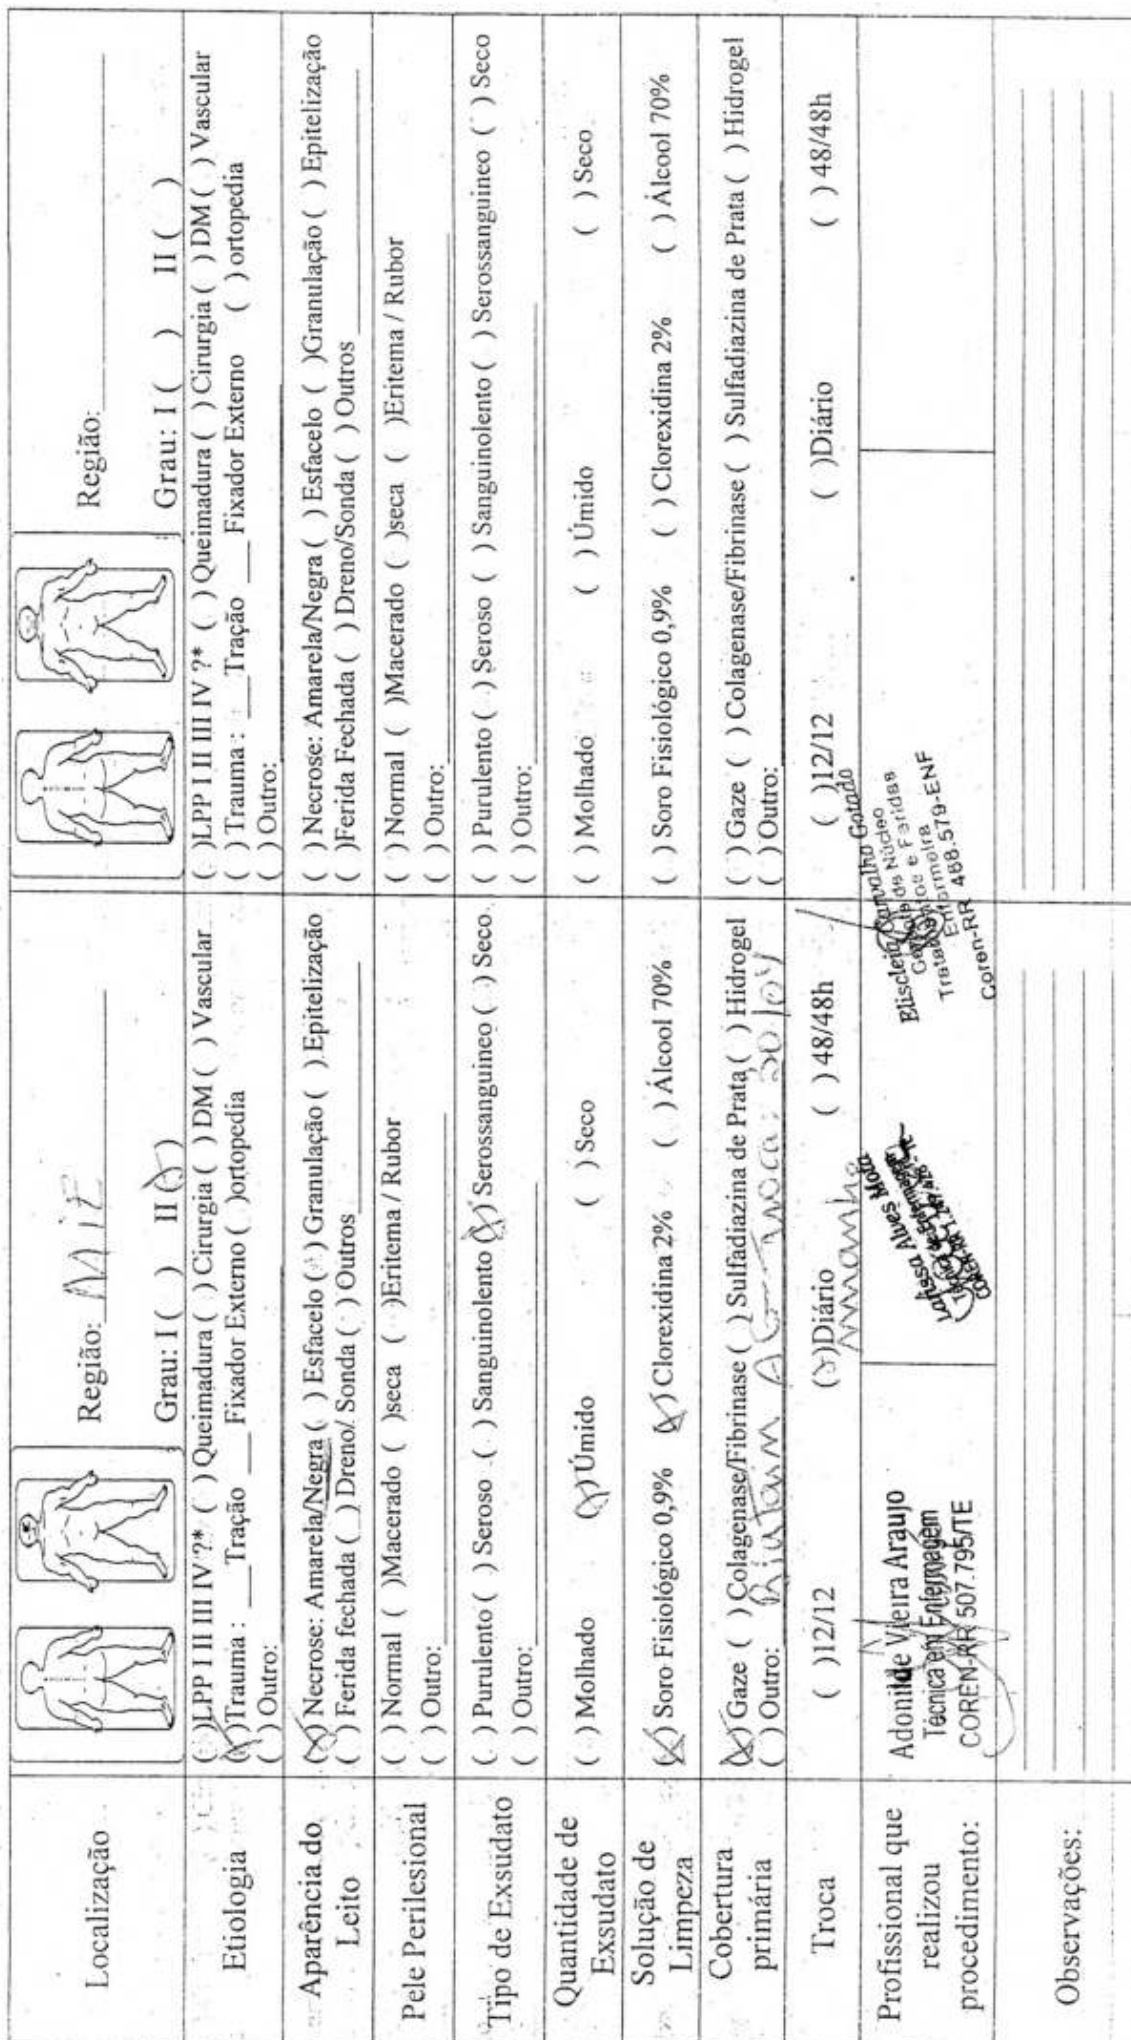 Localização
Região: MIE
Grau: I ( ) II (X)
Região:
Grau: I ( ) II ( )
Etiologia
( )LPP I II III IV ?* ( ) Queimadura ( ) Cirurgia ( ) DM ( ) Vascular
(X)Trauma : ___ Tração ___ Fixador Externo ( )ortopedia
( ) Outro:
( )LPP I II III IV ?* ( ) Queimadura ( ) Cirurgia ( ) DM ( ) Vascular
( ) Trauma : ___ Tração ___ Fixador Externo ( ) ortopedia
( ) Outro:
Aparência do
Leito
(X) Necrose: Amarela/Negra ( ) Esfacelo ( ) Granulação ( ) Epitelização
( ) Ferida fechada ( ) Dreno/ Sonda ( ) Outros
( ) Necrose: Amarela/Negra ( ) Esfacelo ( )Granulação ( ) Epitelização
( )Ferida Fechada ( ) Dreno/Sonda ( ) Outros
Pele Perilesional
( ) Normal ( )Macerado ( )seca ( )Eritema / Rubor
( ) Outro:
( ) Normal ( )Macerado ( )seca ( )Eritema / Rubor
( ) Outro:
Tipo de Exsudato
( ) Purulento ( ) Seroso ( ) Sanguinolento (X) Serossanguineo ( ) Seco
( ) Outro:
( ) Purulento ( ) Seroso ( ) Sanguinolento ( ) Serossanguineo ( ) Seco
( ) Outro:
Quantidade de
Exsudato
( ) Molhado (X) Úmido ( ) Seco
( ) Molhado ( ) Úmido ( ) Seco
Solução de
Limpeza
(X) Soro Fisiológico 0,9% (X) Clorexidina 2% ( ) Álcool 70%
( ) Soro Fisiológico 0,9% ( ) Clorexidina 2% ( ) Álcool 70%
Cobertura
primária
(X) Gaze ( ) Colagenase/Fibrinase ( ) Sulfadiazina de Prata ( ) Hidrogel
( ) Outro: AG troca: 30/04
( ) Gaze ( ) Colagenase/Fibrinase ( ) Sulfadiazina de Prata ( ) Hidrogel
( ) Outro:
Troca
( )12/12 (X)Diário ( ) 48/48h
manhã
( )12/12 ( )Diário ( ) 48/48h
Profissional que
realizou
procedimento:
Adonilde Vieira Araujo
Técnica em Enfermagem
COREN-RR 507.795/TE
Larissa Alves Mota
Técnica de Enfermagem
Eliscleia Carvalho Gotado
Enfermeira
Coren-RR 468.579-ENF
Observações: